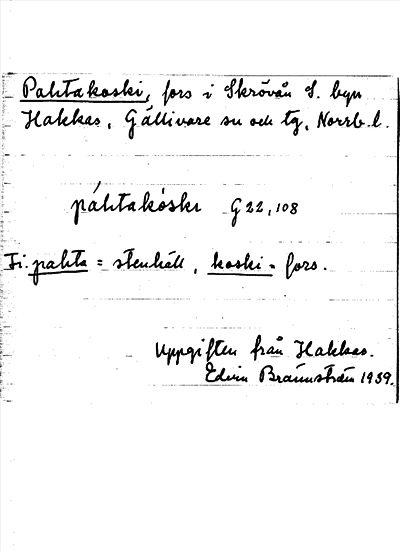 Pahtakoski, fors i Skrövån S. byn
Hakkas, Gällivare sn och tg, Norrb. l.
páhtakòskɩ G 22,108
Fi. pahta = stenhäll, koski = fors.
Uppgiften från Hakkas.
Edvin Brännström 1939.